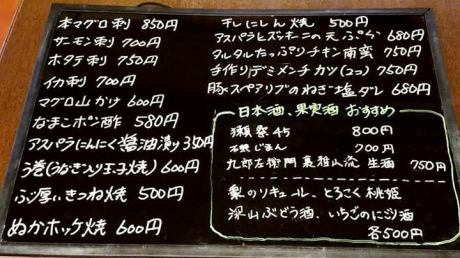 本マグロ刺 850円
サーモン刺 700円
ホタテ刺 750円
イカ刺 700円
マグロ山かけ 600円
なまこポン酢 580円
アスパラにんにく醤油漬け 350円
う巻(うなぎ入り玉子焼) 600円
ぶ厚いきつね焼 500円
ぬかホッケ焼 600円
干しにしん焼 500円
アスパラとズッキーニの天ぷら 680円
タルタルたっぷりチキン南蛮 750円
手作りデミメンチカツ(2コ) 750円
豚スペアリブのねぎ塩ダレ 680円
日本酒、果実酒 おすすめ
獺祭45 800円
石鎚じまん 700円
九郎左衛門 裏雅山流 生酒 750円
梨のリキュール、とろこく桃姫
深山ぶどう酒、いちごのにごり酒
各500円